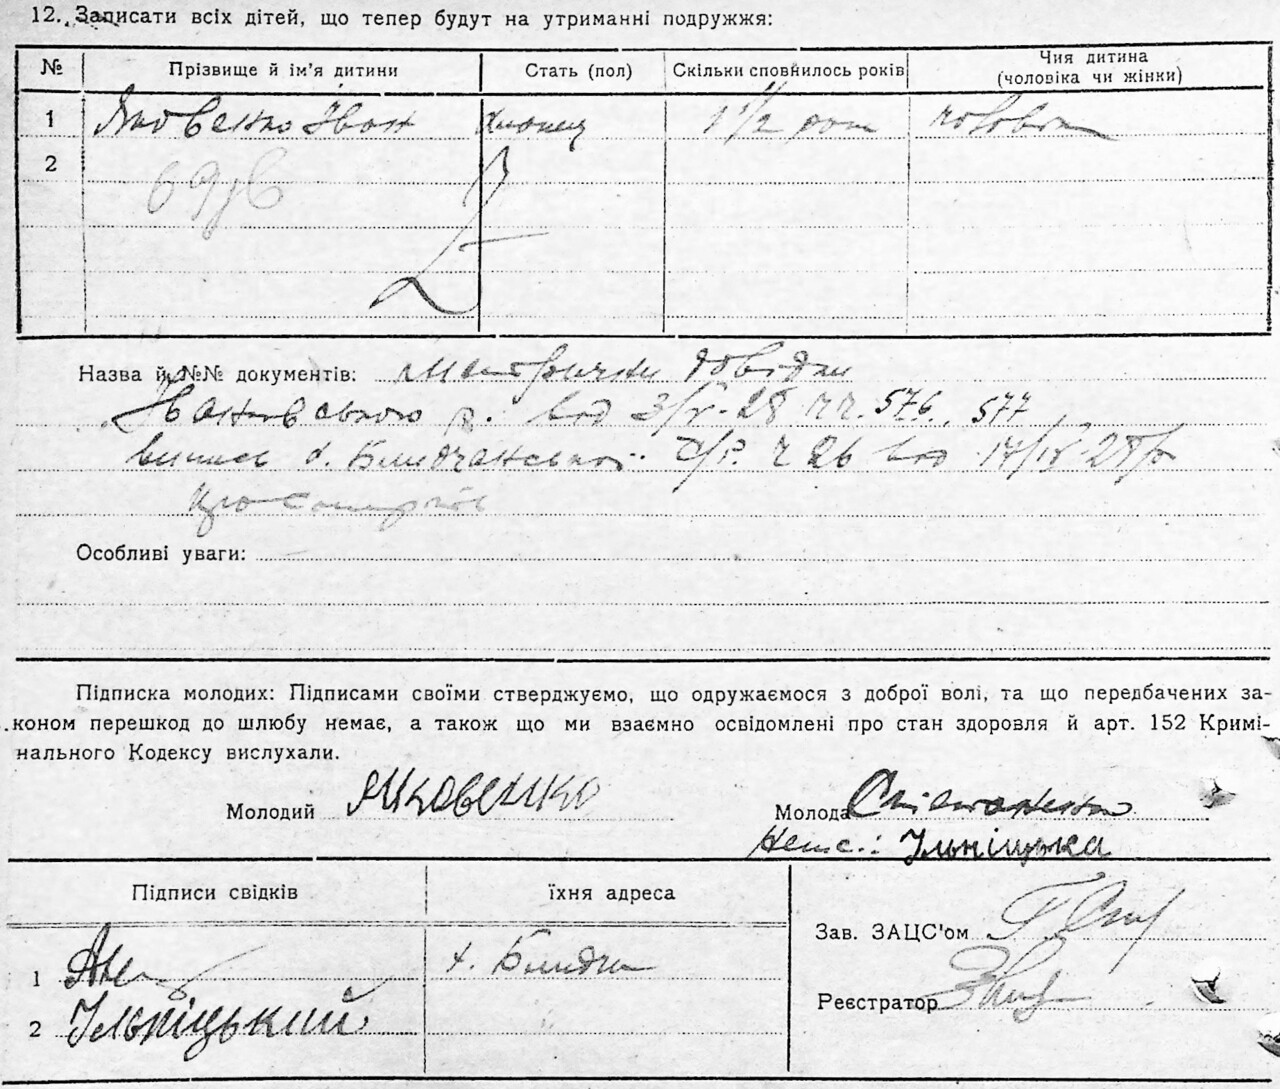 12. Записати всіх дітей, що тепер будут на утриманні подружжя:
№ Прізвище й ім'я дитини Стать (пол) Скільки сповнилось років Чия дитина (чоловіка чи жінки)
1 Яковенко Іван хлопец 1 1/2 рок чоловіка
2
Назва й №№ документів: Метричні довідки
Іванківського р. від 3/V-28 чч. 576, 577
випись с. Блидчанської с/р. ч 26 від 17/IV-28 р
про
Особливі уваги:
Підписка молодих: Підписами своїми стверджуємо, що одружаємося з доброї волі, та що передбачених за-
коном перешкод до шлюбу немає, а також що ми взаємно освідомлені про стан здоровля й арт. 152 Кримі-
нального Кодексу вислухали.
Молодий Яковенко Молода
Непис.: Ільніцька
Підписи свідків їхня адреса
Зав. ЗАЦС'ом
1 с. Блидча
Реєстратор
2 Ільніцький